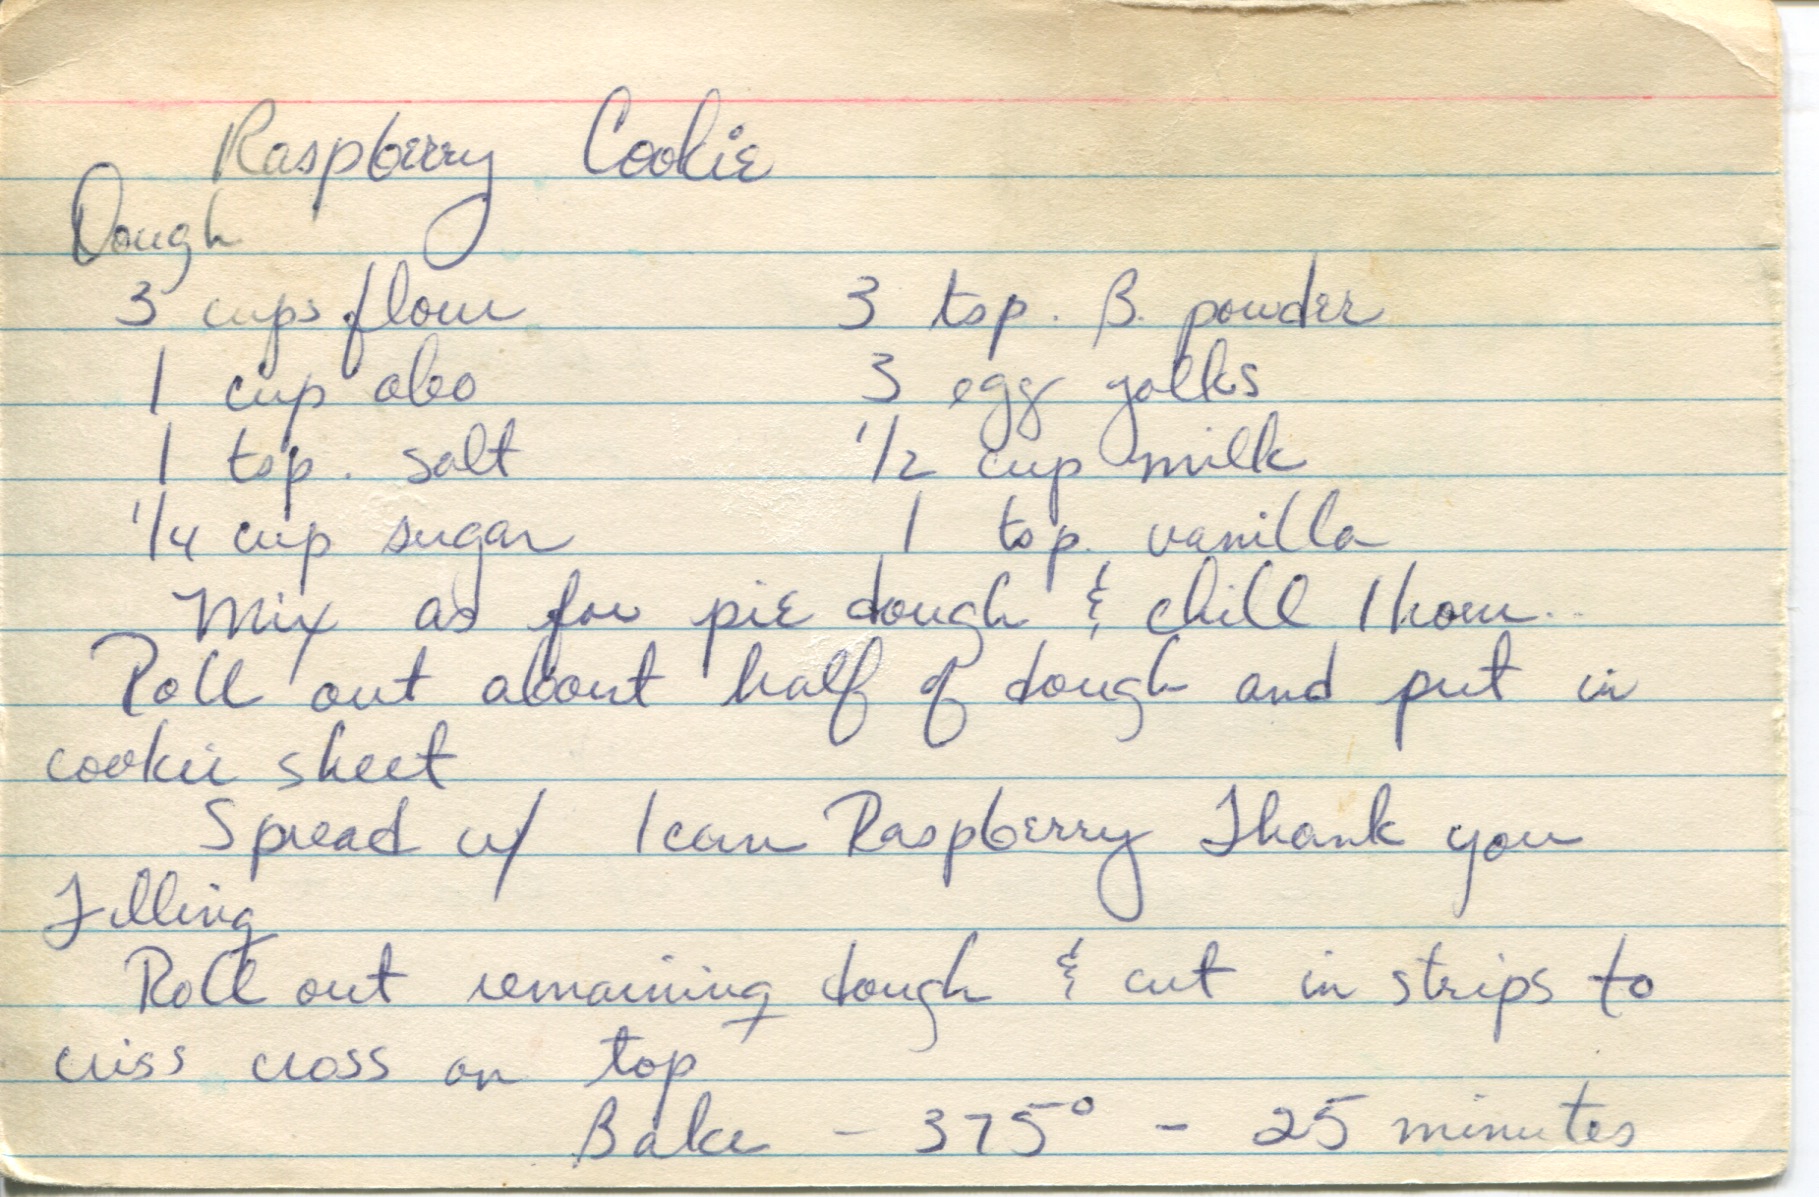 Raspberry Cookie
Dough
3 cups flour 3 tsp. B. powder
1 cup oleo 3 egg yolks
1 tsp. salt 1/2 cup milk
1/4 cup sugar 1 tsp. vanilla
Mix as for pie dough & chill 1 hour..
Roll out about half of dough and put in
cookie sheet
Spread w/ 1 can Raspberry Thank you
Filling
Roll out remaining dough & cut in strips to
criss cross on top
Bake - 375° - 25 minutes